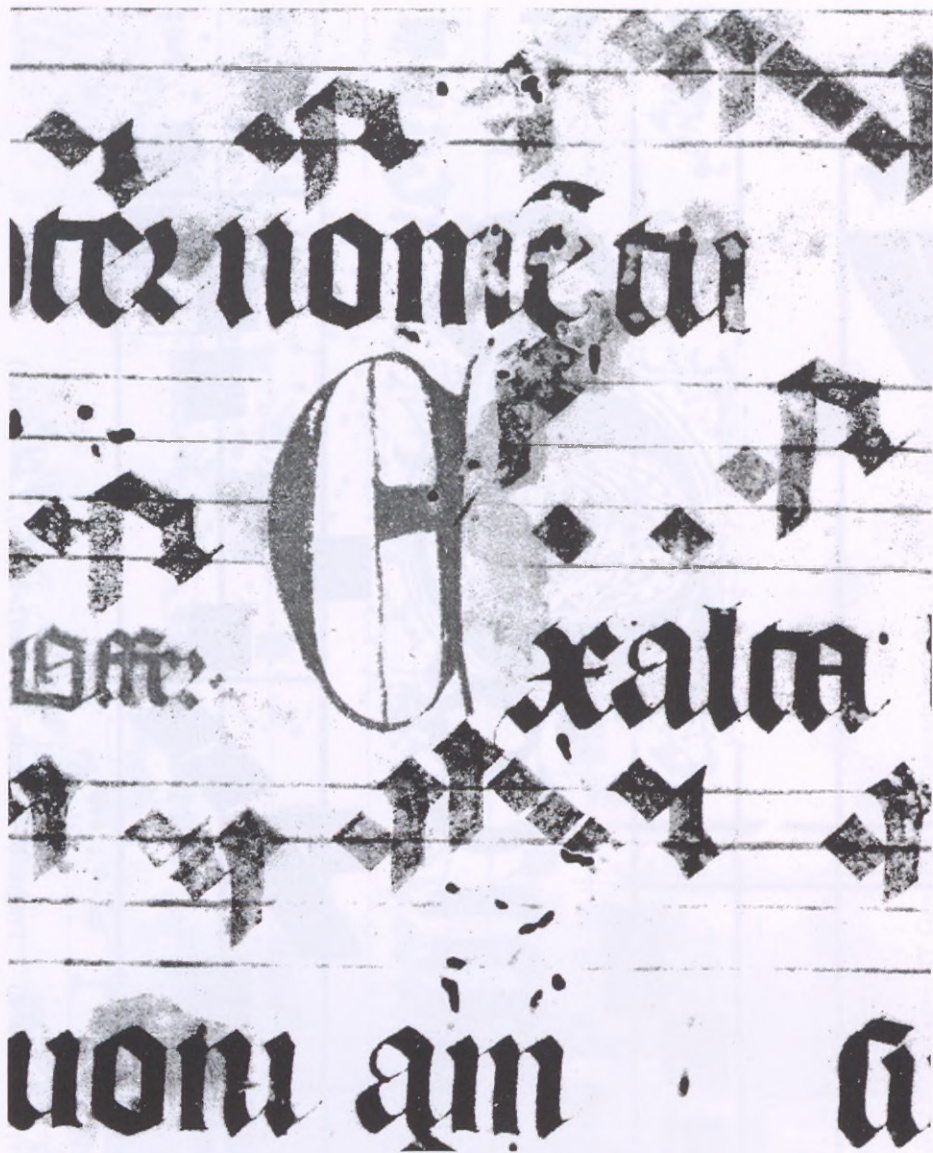 pter nomē tu
Offer. Exalta
uoni am